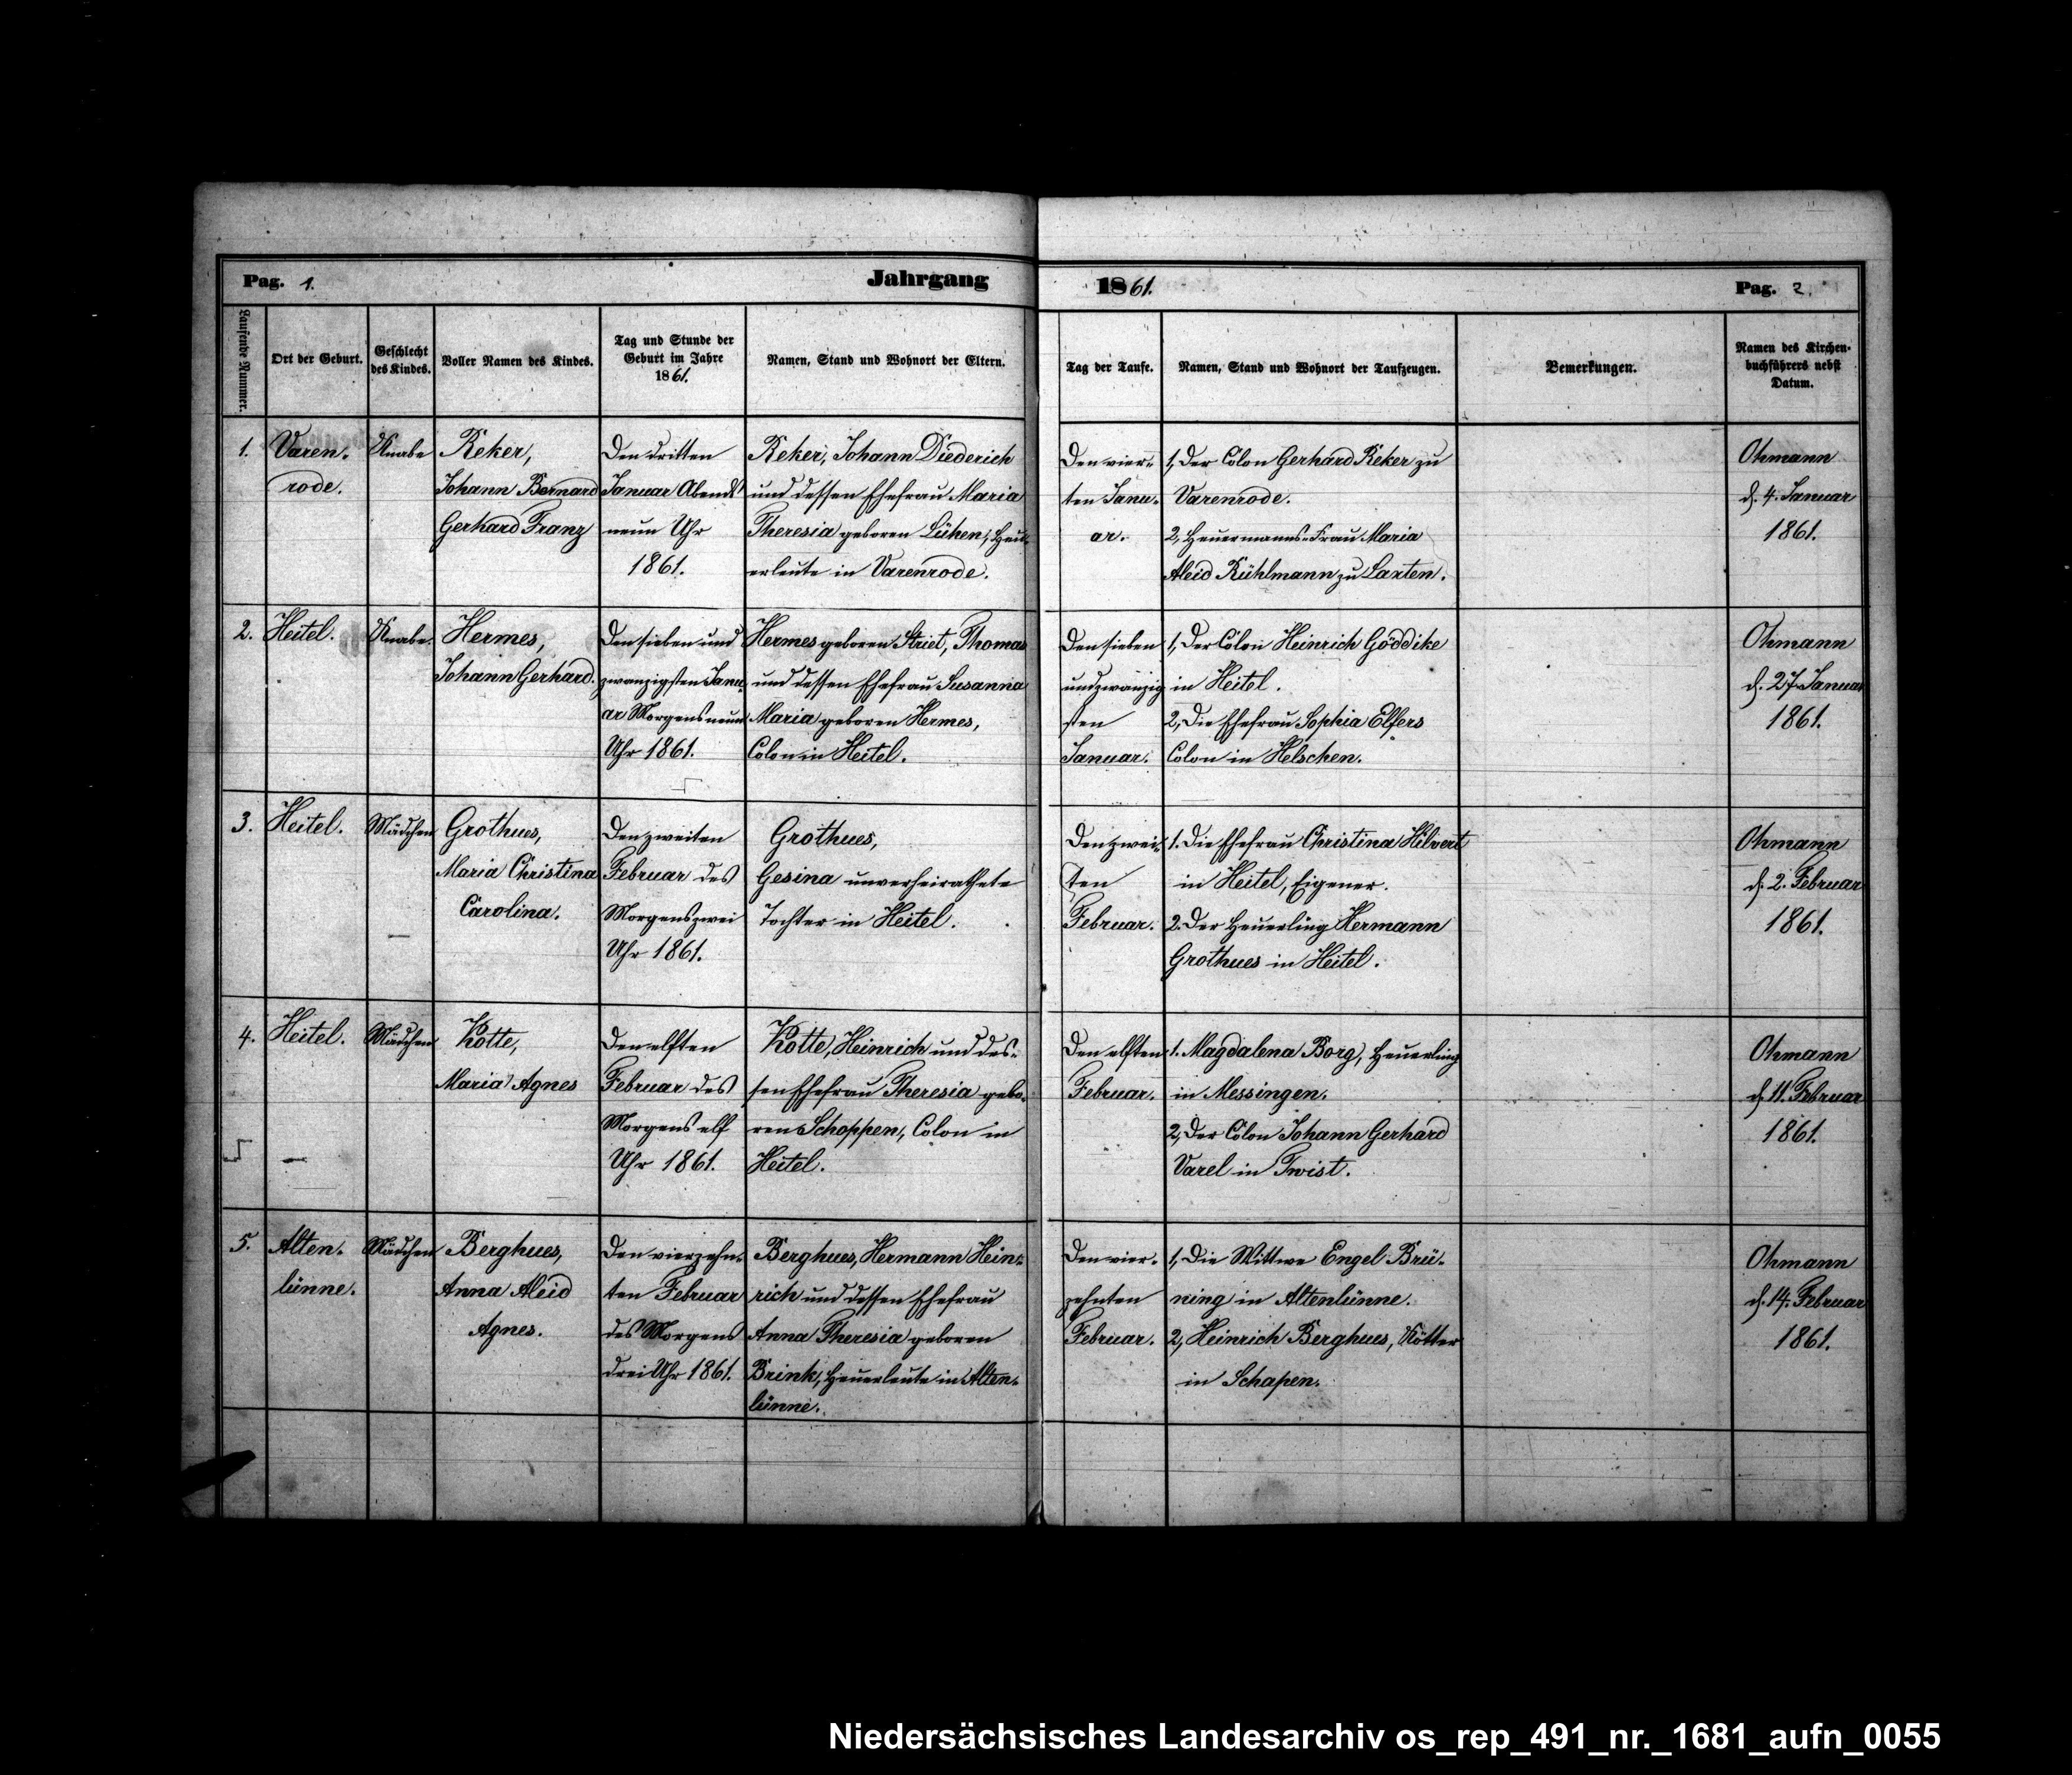 Pag. 1.
Jahrgang
1861.
Pag. 2.
Laufende Nummer.
Ort der Geburt.
Geschlecht
des Kindes.
Voller Namen des Kindes.
Tag und Stunde der
Geburt im Jahre
1861.
Namen, Stand und Wohnort der Eltern.
Tag der Taufe.
Namen, Stand und Wohnort der Taufzeugen.
Bemerkungen.
Namen des Kirchen-
buchführers nebst
Datum.
1.
Varen-
rode.
Knabe
Reker,
Johann Bernard
Gerhard Franz
Den dritten
Januar Abends
neun Uhr
1861.
Reker, Johann Diederich
und dessen Ehefrau Maria
Theresia geboren Lühen, Heu-
erleute in Varenrode.
Den vier-
ten Janu-
ar.
1, Der Colon Gerhard Reker zu
Varenrode.
2, Heuermanns-Frau Maria
Aleid Rühlmann zu Laxten.
Ohmann
d. 4. Januar
1861.
2.
Heitel.
Knabe.
Hermes,
Johann Gerhard.
Den sieben und
zwanzigsten Janu-
ar Morgens neun
Uhr 1861.
Hermes geboren Striet, Thomas
und dessen Ehefrau Susanna
Maria geboren Hermes,
Colon in Heitel.
Den sieben
und zwanzig
sten
Januar.
1, Der Colon Heinrich Göddike
in Heitel.
2, Die Ehefrau Sophia Elfers
Colon in Helschen.
Ohmann
d. 27. Januar
1861.
3.
Heitel.
Mädchen
Grothues,
Maria Christina
Carolina.
Den zweiten
Februar des
Morgens zwei
Uhr 1861.
Grothues,
Gesina unverheirathete
Tochter in Heitel.
Den zwei-
ten
Februar.
1. Die Ehefrau Christina Hilvert
in Heitel, Eigener.
2. Der Heuerling Hermann
Grothues in Heitel.
Ohmann
d. 2. Februar
1861.
4.
Heitel.
Mädchen
Kotte,
Maria Agnes
Den elften
Februar des
Morgens elf
Uhr 1861.
Kotte, Heinrich und des-
sen Ehefrau Theresia gebo-
ren Schoppen, Colon in
Heitel.
Den elften
Februar.
1. Magdalena Borg, Heuerling
in Messingen.
2, Der Colon Johann Gerhard
Varel in Twist.
Ohmann
d. 11. Februar
1861.
5.
Alten-
lünne.
Mädchen
Berghues,
Anna Aleid
Agnes.
Den vierzehn-
ten Februar
des Morgens
drei Uhr 1861.
Berghues, Hermann Hein-
rich und dessen Ehefrau
Anna Theresia geboren
Brink, Heuerleute in Alten-
lünne.
Den vier-
zehnten
Februar.
1, Die Wittwe Engel Brü-
ning in Altenlünne.
2, Heinrich Berghues, Kötter
in Schapen.
Ohmann
d. 14. Februar
1861.
Niedersächsisches Landesarchiv os_rep_491_nr._1681_aufn_0055